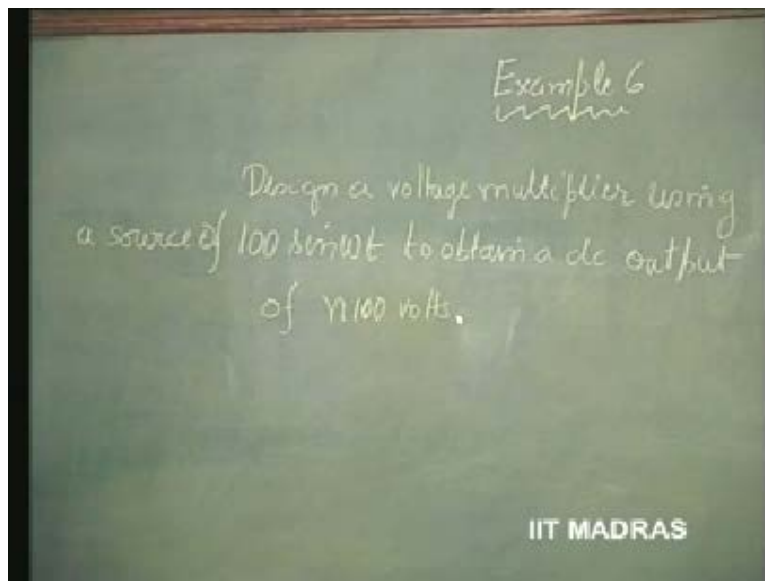 Example 6
Design a voltage multiplier using
a source of 100 sinωt to obtain a dc output
of n100 volts.
IIT MADRAS